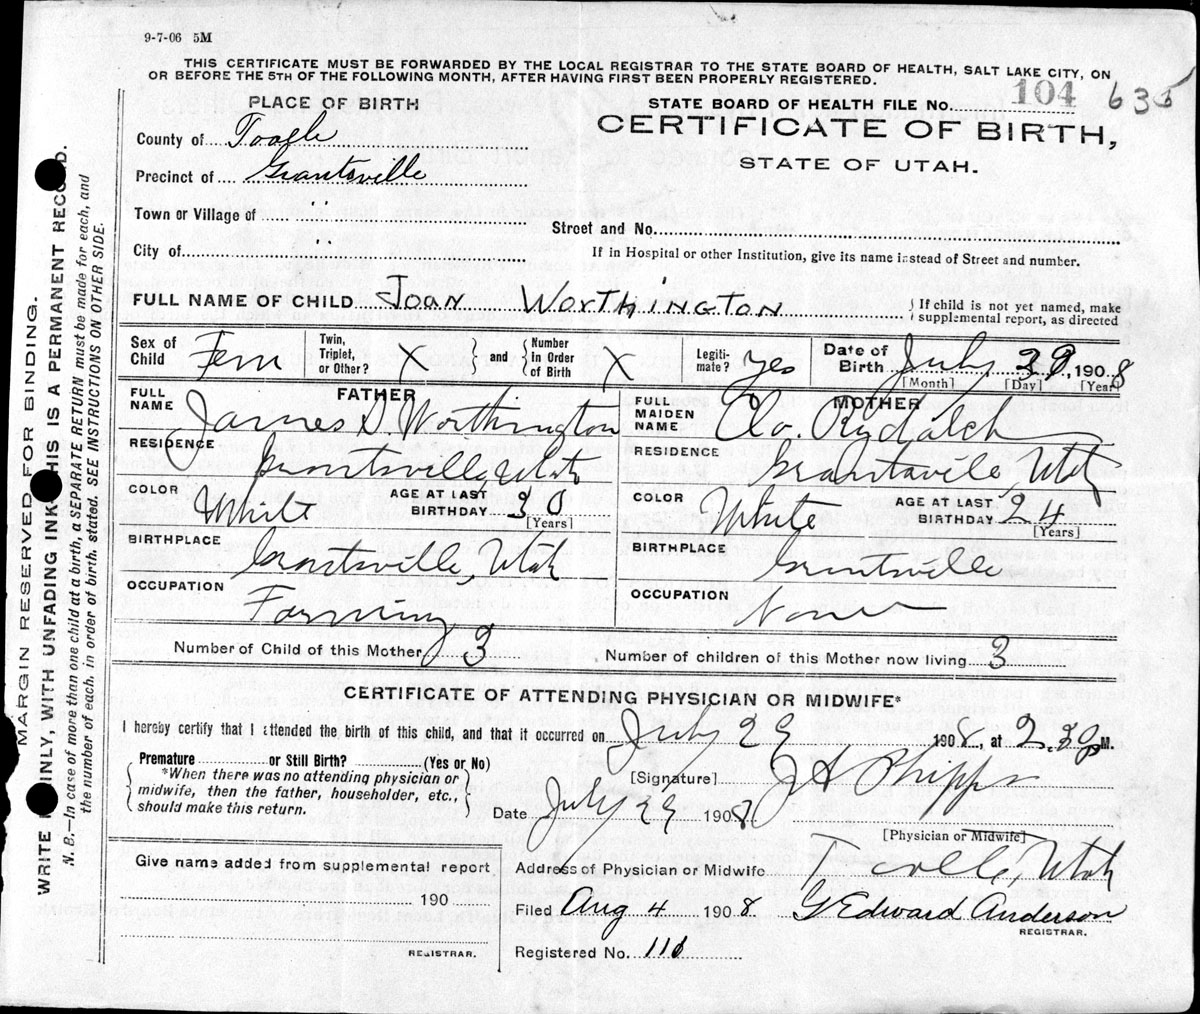 9-7-06 5M
THIS CERTIFICATE MUST BE FORWARDED BY THE LOCAL REGISTRAR TO THE STATE BOARD OF HEALTH, SALT LAKE CITY, ON
OR BEFORE THE 5TH OF THE FOLLOWING MONTH, AFTER HAVING FIRST BEEN PROPERLY REGISTERED.
PLACE OF BIRTH
STATE BOARD OF HEALTH FILE No. 104 635
County of Tooele
CERTIFICATE OF BIRTH,
Precinct of Grantsville
STATE OF UTAH.
Town or Village of "
Street and No.
City of "
If in Hospital or other Institution, give its name instead of Street and number.
FULL NAME OF CHILD JOAN WORTHINGTON
{ If child is not yet named, make supplemental report, as directed
Sex of Child Fem
Twin, Triplet, or Other? X } and { Number In Order of Birth X
Legitimate? yes
Date of Birth July 29, 1908
[Month] [Day] [Year]
FATHER
FULL NAME James D Worthington
RESIDENCE Grantsville, Utah
COLOR White
AGE AT LAST BIRTHDAY 30
[Years]
BIRTHPLACE Grantsville, Utah
OCCUPATION Farming
MOTHER
FULL MAIDEN NAME Clo. Rydalch
RESIDENCE Grantsville, Utah
COLOR White
AGE AT LAST BIRTHDAY 24
[Years]
BIRTHPLACE Grantsville
OCCUPATION None
Number of Child of this Mother 3
Number of children of this Mother now living 3
CERTIFICATE OF ATTENDING PHYSICIAN OR MIDWIFE*
I hereby certify that I attended the birth of this child, and that it occurred on July 29 1908, at 2.30 P M.
Premature or Still Birth? (Yes or No)
{ *When there was no attending physician or midwife, then the father, householder, etc., should make this return. }
[Signature] J A Phipps
Date July 29 1908
[Physician or Midwife]
Give name added from supplemental report
190
REGISTRAR.
Address of Physician or Midwife Tooele, Utah
Filed Aug 4 1908 G Edward Anderson
REGISTRAR.
Registered No. 111
MARGIN RESERVED FOR BINDING.
WRITE PLAINLY, WITH UNFADING INK—THIS IS A PERMANENT RECORD.
N. B.—In case of more than one child at a birth, a SEPARATE RETURN must be made for each, and
the number of each, in order of birth, stated. SEE INSTRUCTIONS ON OTHER SIDE.